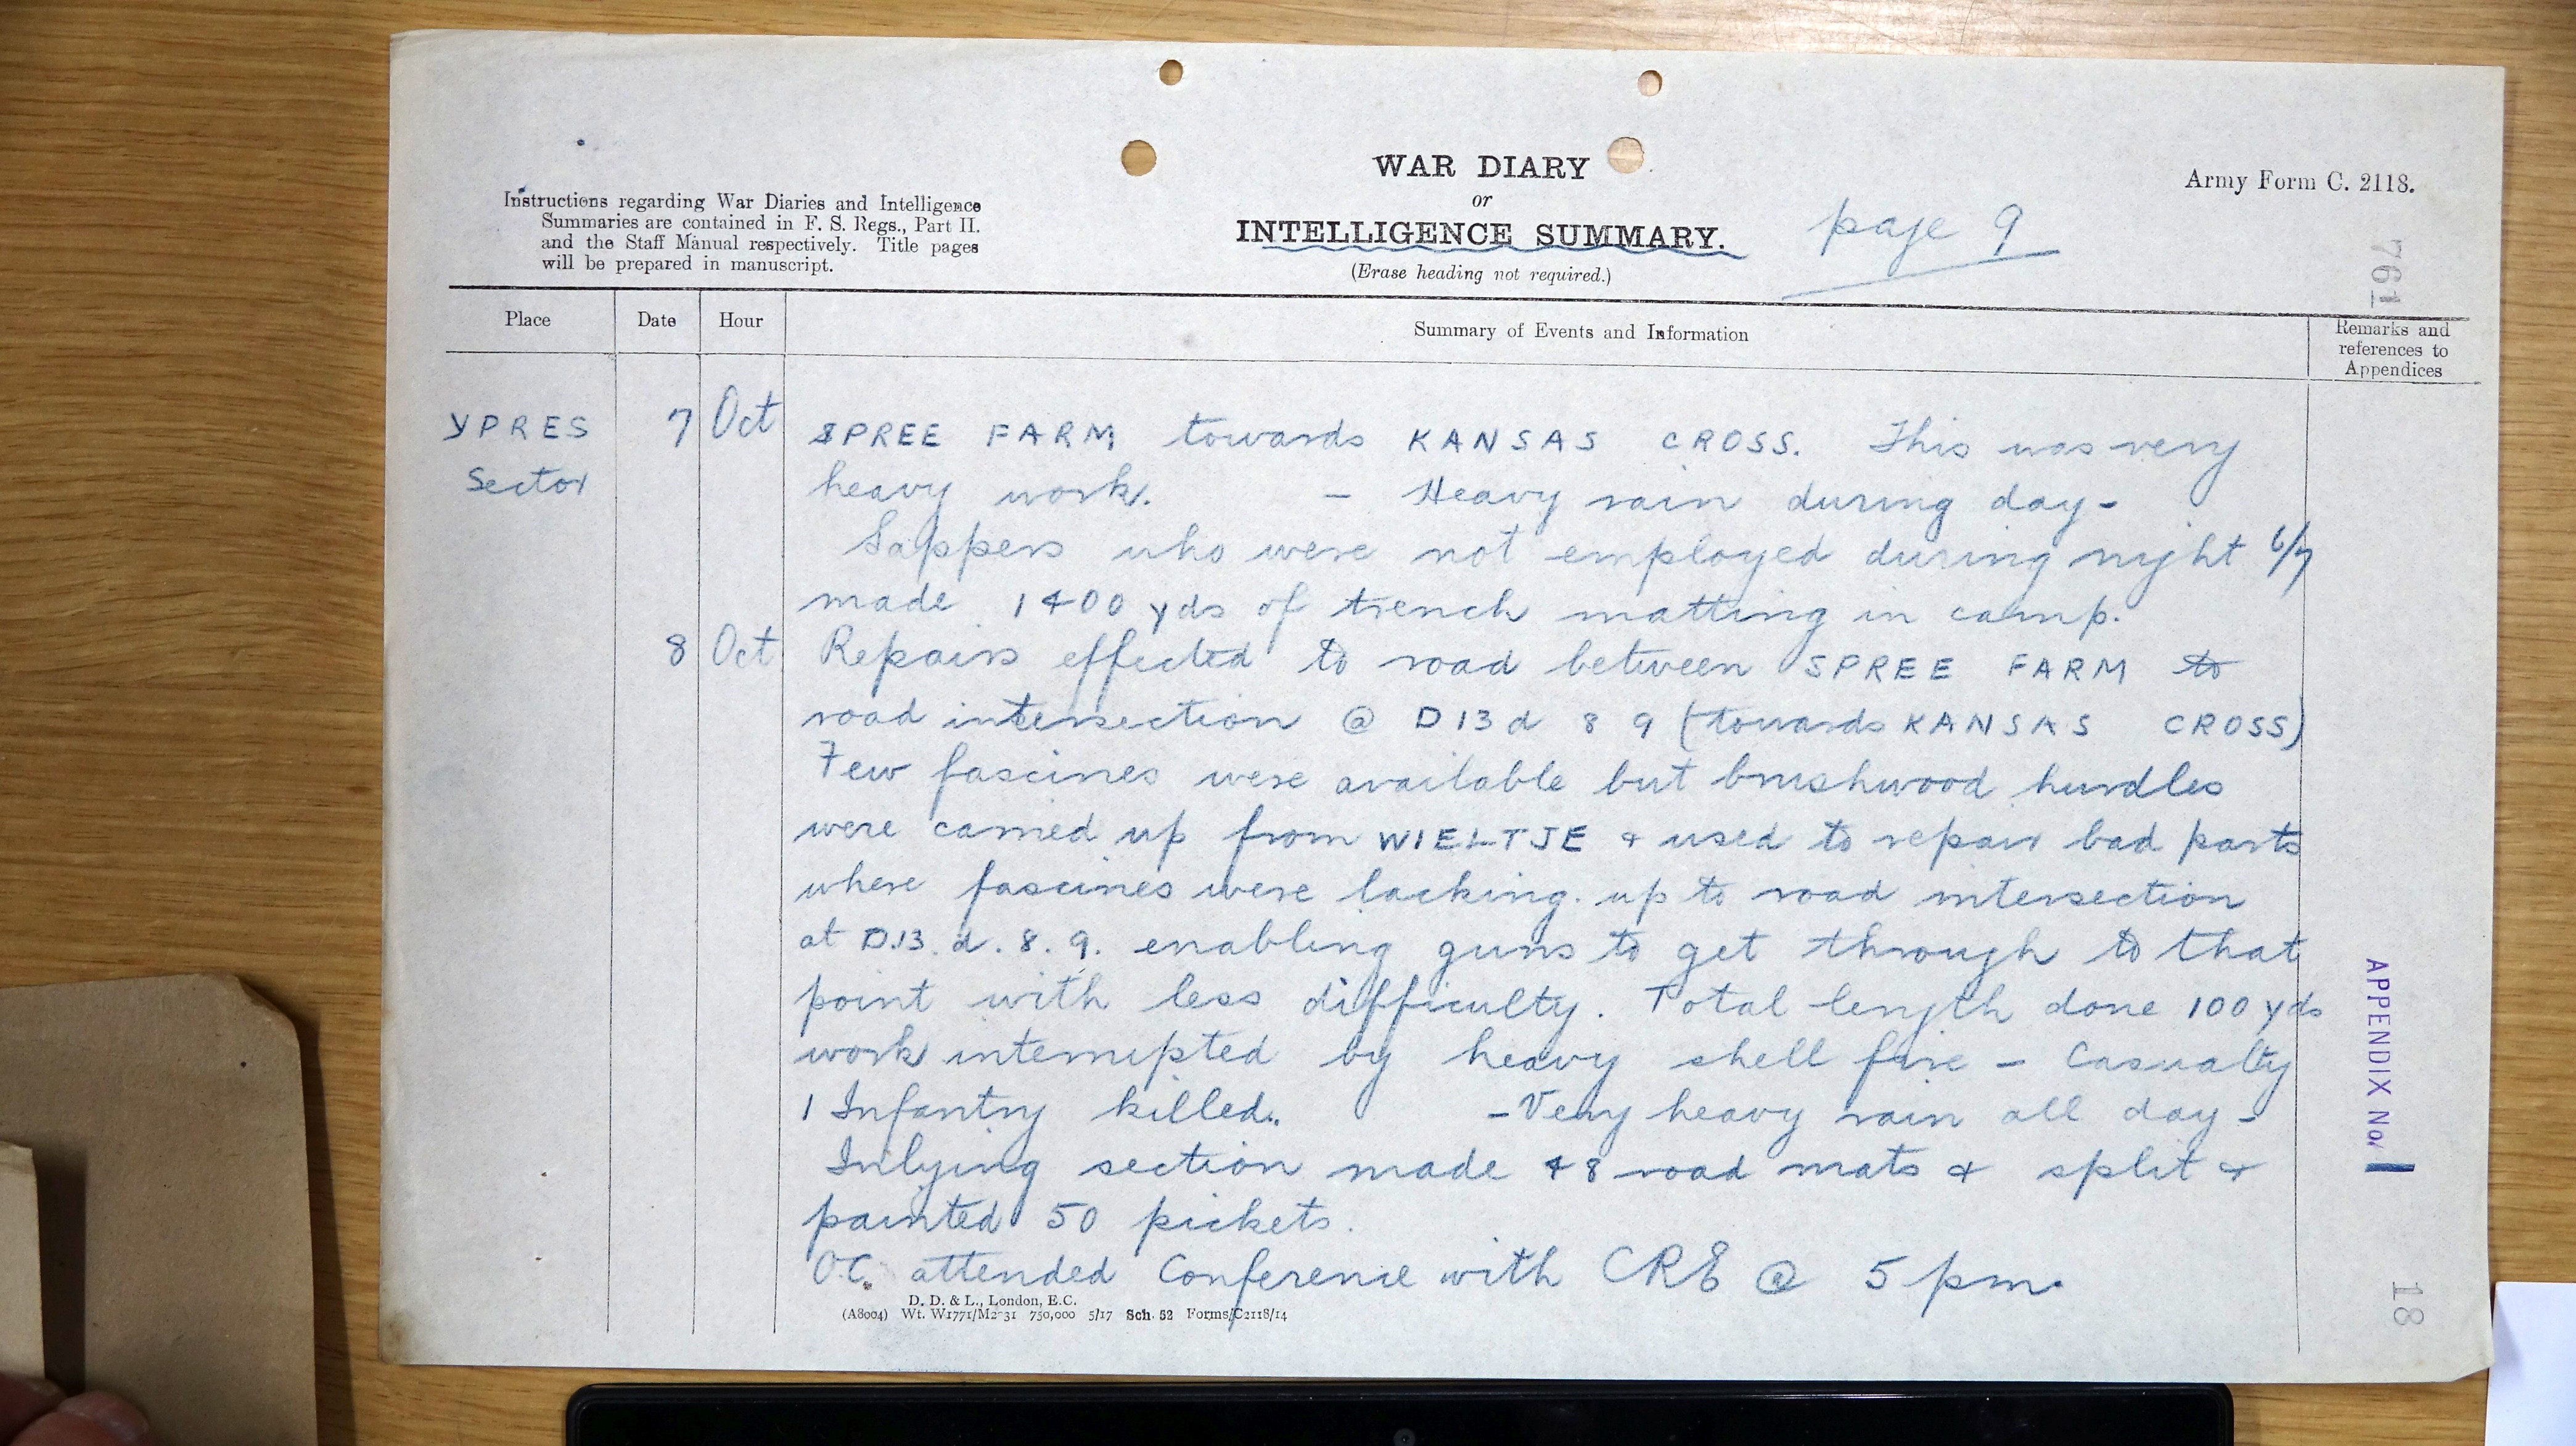 WAR DIARY
or
INTELLIGENCE SUMMARY.
(Erase heading not required.)
page 9
Army Form C. 2118.
Instructions regarding War Diaries and Intelligence
Summaries are contained in F. S. Regs., Part II.
and the Staff Manual respectively. Title pages
will be prepared in manuscript.
761
Place Date Hour Summary of Events and Information Remarks and
references to
Appendices
YPRES 7 Oct SPREE FARM towards KANSAS CROSS. This was very
Sector heavy work. – Heavy rain during day –
Sappers who were not employed during night 6/7
made 1400 yds of trench matting in camp.
8 Oct Repairs effected to road between SPREE FARM to
road intersection @ D13d 8 9 (towards KANSAS CROSS)
Few fascines were available but brushwood hurdles
were carried up from WIELTJE & used to repair bad parts
where fascines were lacking. up to road intersection
at D.13.d.8.9. enabling guns to get through to that
point with less difficulty. Total length done 100 yds
work interrupted by heavy shell fire – Casualty
1 Infantry killed. – Very heavy rain all day –
Inlying section made 48 road mats & split &
painted 50 pickets.
O.C. attended Conference with CRE @ 5 pm.
APPENDIX No. 1
18
D. D. & L., London, E.C.
(A8004) Wt. W1771/M2031 750,000 5/17 Sch. 52 Forms/C2118/14